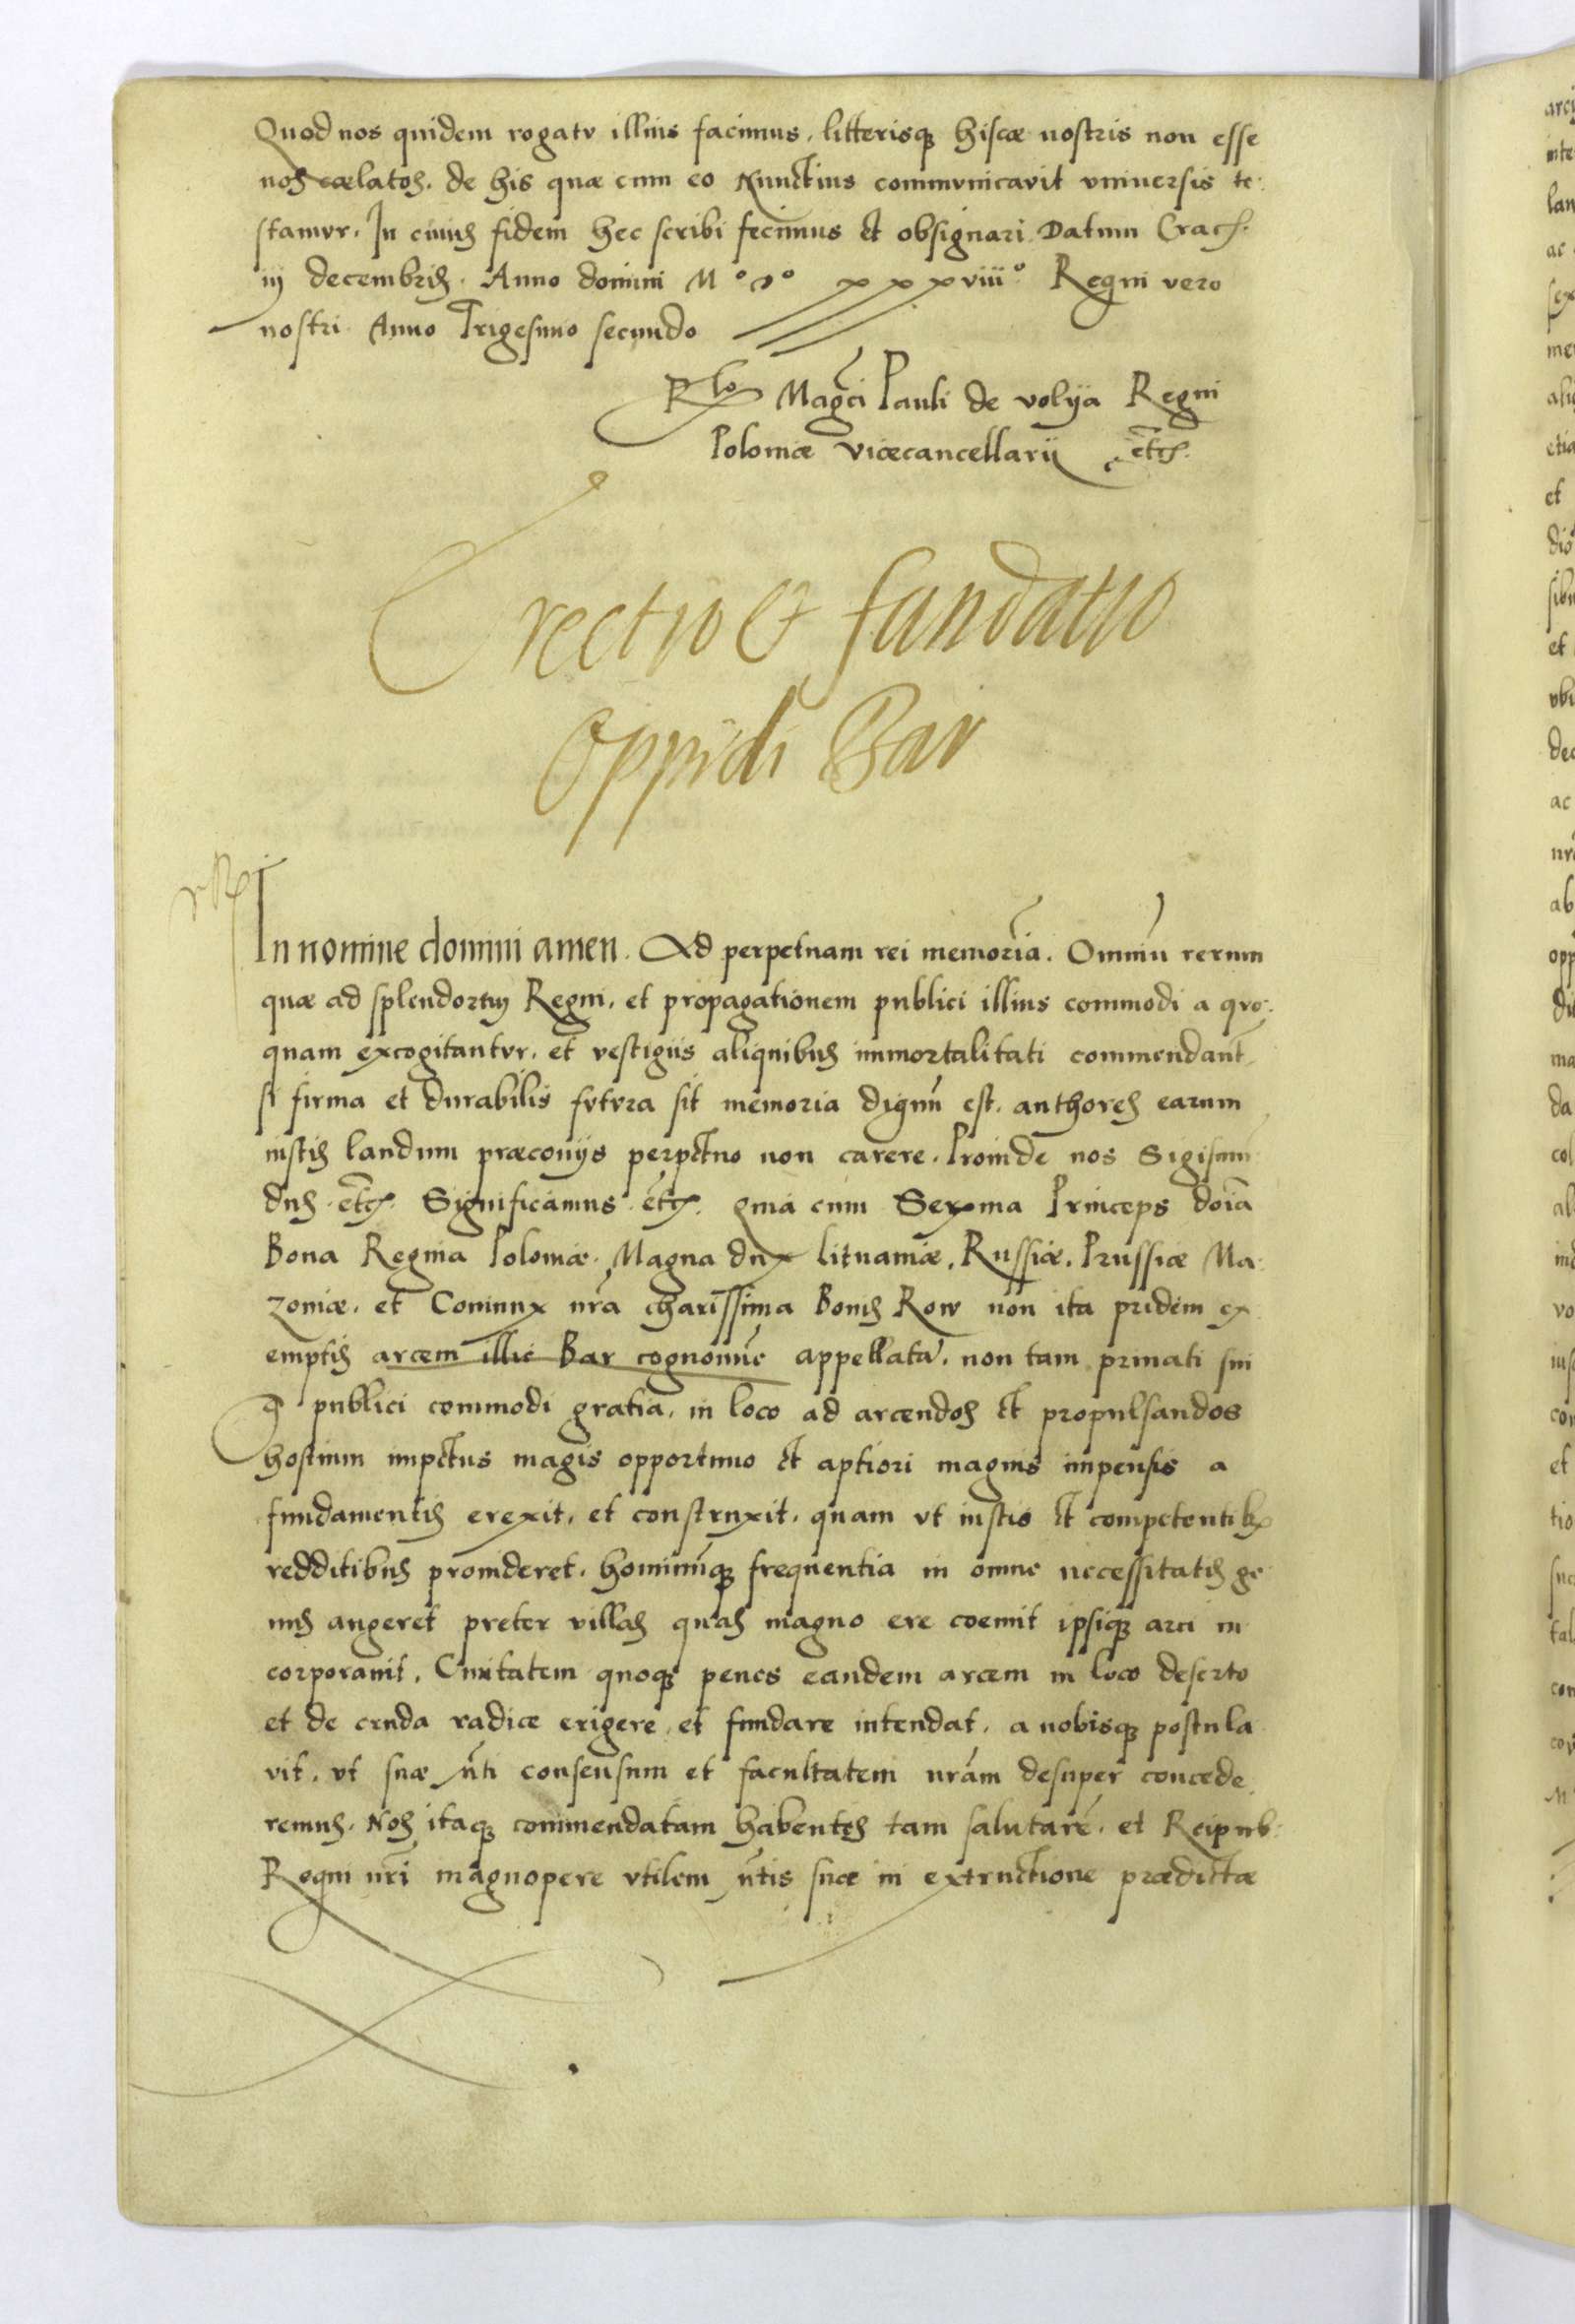 Quod nos quidem rogatu illius facimus, litterisq; hisce nostris non esse
nos cælatos, de his quæ cum eo Nunctius communicavit universis te:
stamur. In cuius fidem hec scribi fecimus et obsignari Datum Crac.
iij decembris. Anno domini M° D° xxxviii° Regni vero
nostri Anno Trigesimo secundo
Rlo Magci Pauli de volija Regni
Poloniæ vicecancellarij etc.
Erectio & fundatio
Oppidi Bar
In nomine domini amen. Ad perpetuam rei memoria. Omniu rerum
quæ ad splendorem Regni, et propagationem publici illius commodi a quo:
quam excogitantur, et vestigiis aliquibus immortalitati commendant
si firma et durabilis futura sit memoria dignu est, authores earum
iustis laudum præconijs perpetuo non carere. Proinde nos Sigismu
dus etc. Significamus etc. quia cum Serma Princeps doia
Bona Regina Poloniæ. Magna dux lituaniæ, Russiæ, Prussiæ Ma:
zoniæ, et Coniunx nra charissima Bonis Row non ita pridem ex
emptis arcem illic Bar cognomine appellata, non tam priuati sui
q publici commodi gratia, in loco ad arcendos et propulsandos
hostium impetus magis opportuno et aptiori magnis impensis a
fundamentis erexit, et construxit, quam ut iustis et competentib;
redditibus prouideret, hominuq; frequentia in omne necessitatis ge
nus augeret preter villas quas magno ere coemit ipsiq; arci in
corporauit, Ciuitatem quoq; penes eandem arcem in loco deserto
et de cruda radice erigere et fundare intendat, a nobisq; postula
vit, ut suæ mti consensum et facultatem nram desuper concede
remus. Nos itaq; commendatam habentes tam salutare, et Reipub:
Regni nri magnopere utilem mtis suæ in extructione prædictæ